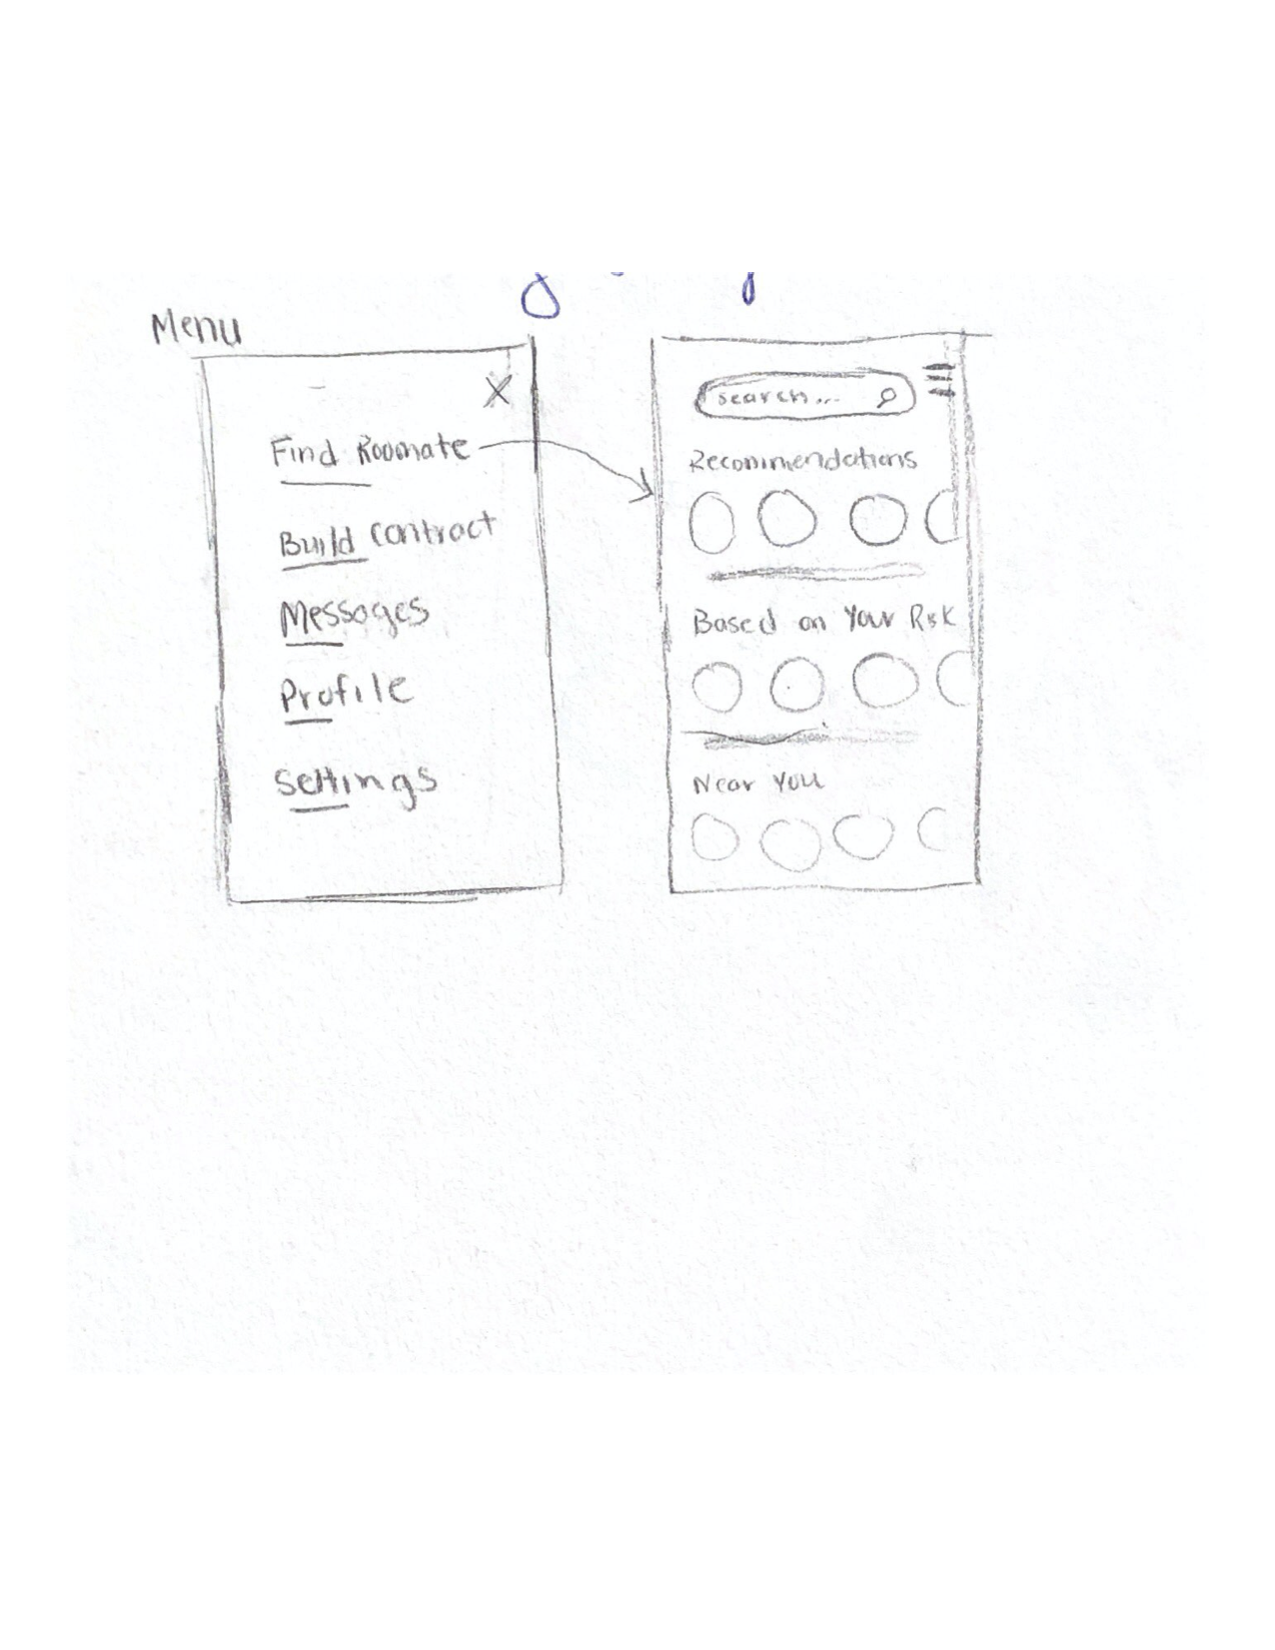 Menu
X
Find Roomate
Build Contract
Messages
Profile
Settings
search...
Recommendations
Based on Your Risk
Near You